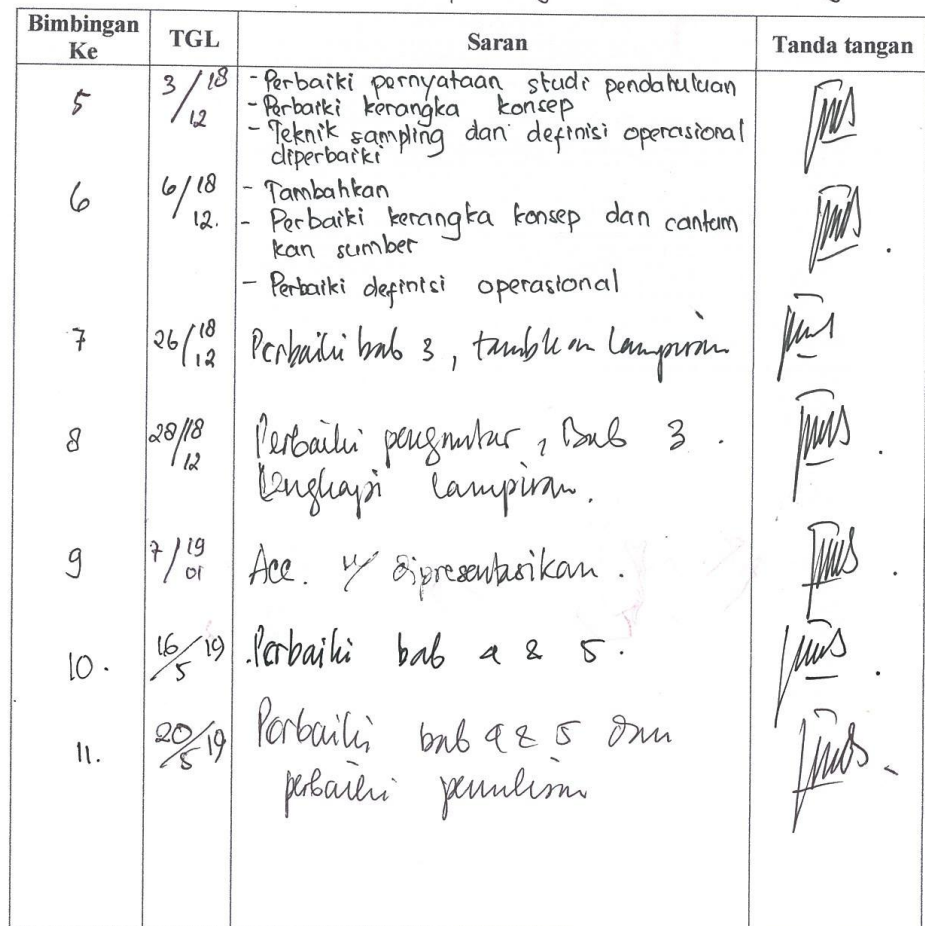 Bimbingan Ke TGL Saran Tanda tangan
5 3/18 12 - Perbaiki pernyataan studi pendahuluan
- Perbaiki kerangka konsep
- Teknik sampling dan definisi operasional
diperbaiki
6 6/18 12. - Tambahkan
- Perbaiki kerangka konsep dan cantum
kan sumber
- Perbaiki definisi operasional
7 26/18 12 Perbaiki bab 3, tambhkan lampiran
8 28/18 12 Perbaiki pengantar, Bab 3.
Lengkapi lampiran.
9 7/19 01 Acc. u/ dipresentasikan.
10. 16/5 19 Perbaiki bab 4 & 5.
11. 20/5 19 Perbaiki bab 4 & 5 dan
perbaiki penulisan